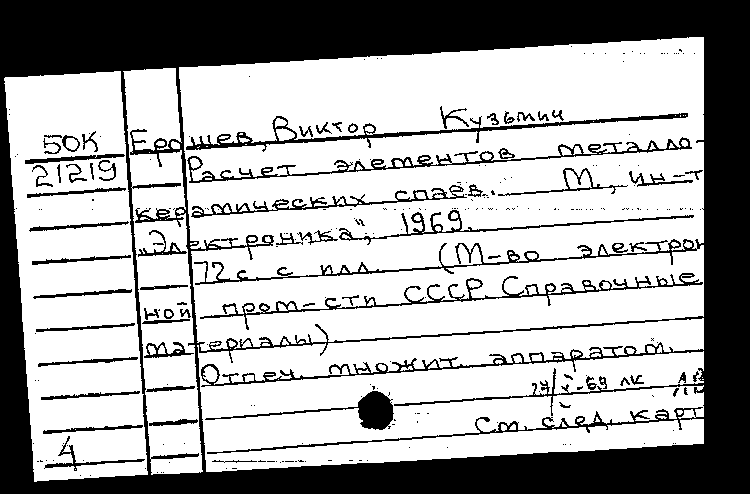 50К Ерошев, Виктор Кузьмич
21219 Расчет элементов металло-
керамических спаев. М., ин-т
„Электроника", 1969.
72 с. с илл. (М-во электрон
ной пром-сти СССР. Справочные
материалы).
Отпеч. множит. аппаратом.
27/X-69 ЛК
См. след. карт
4